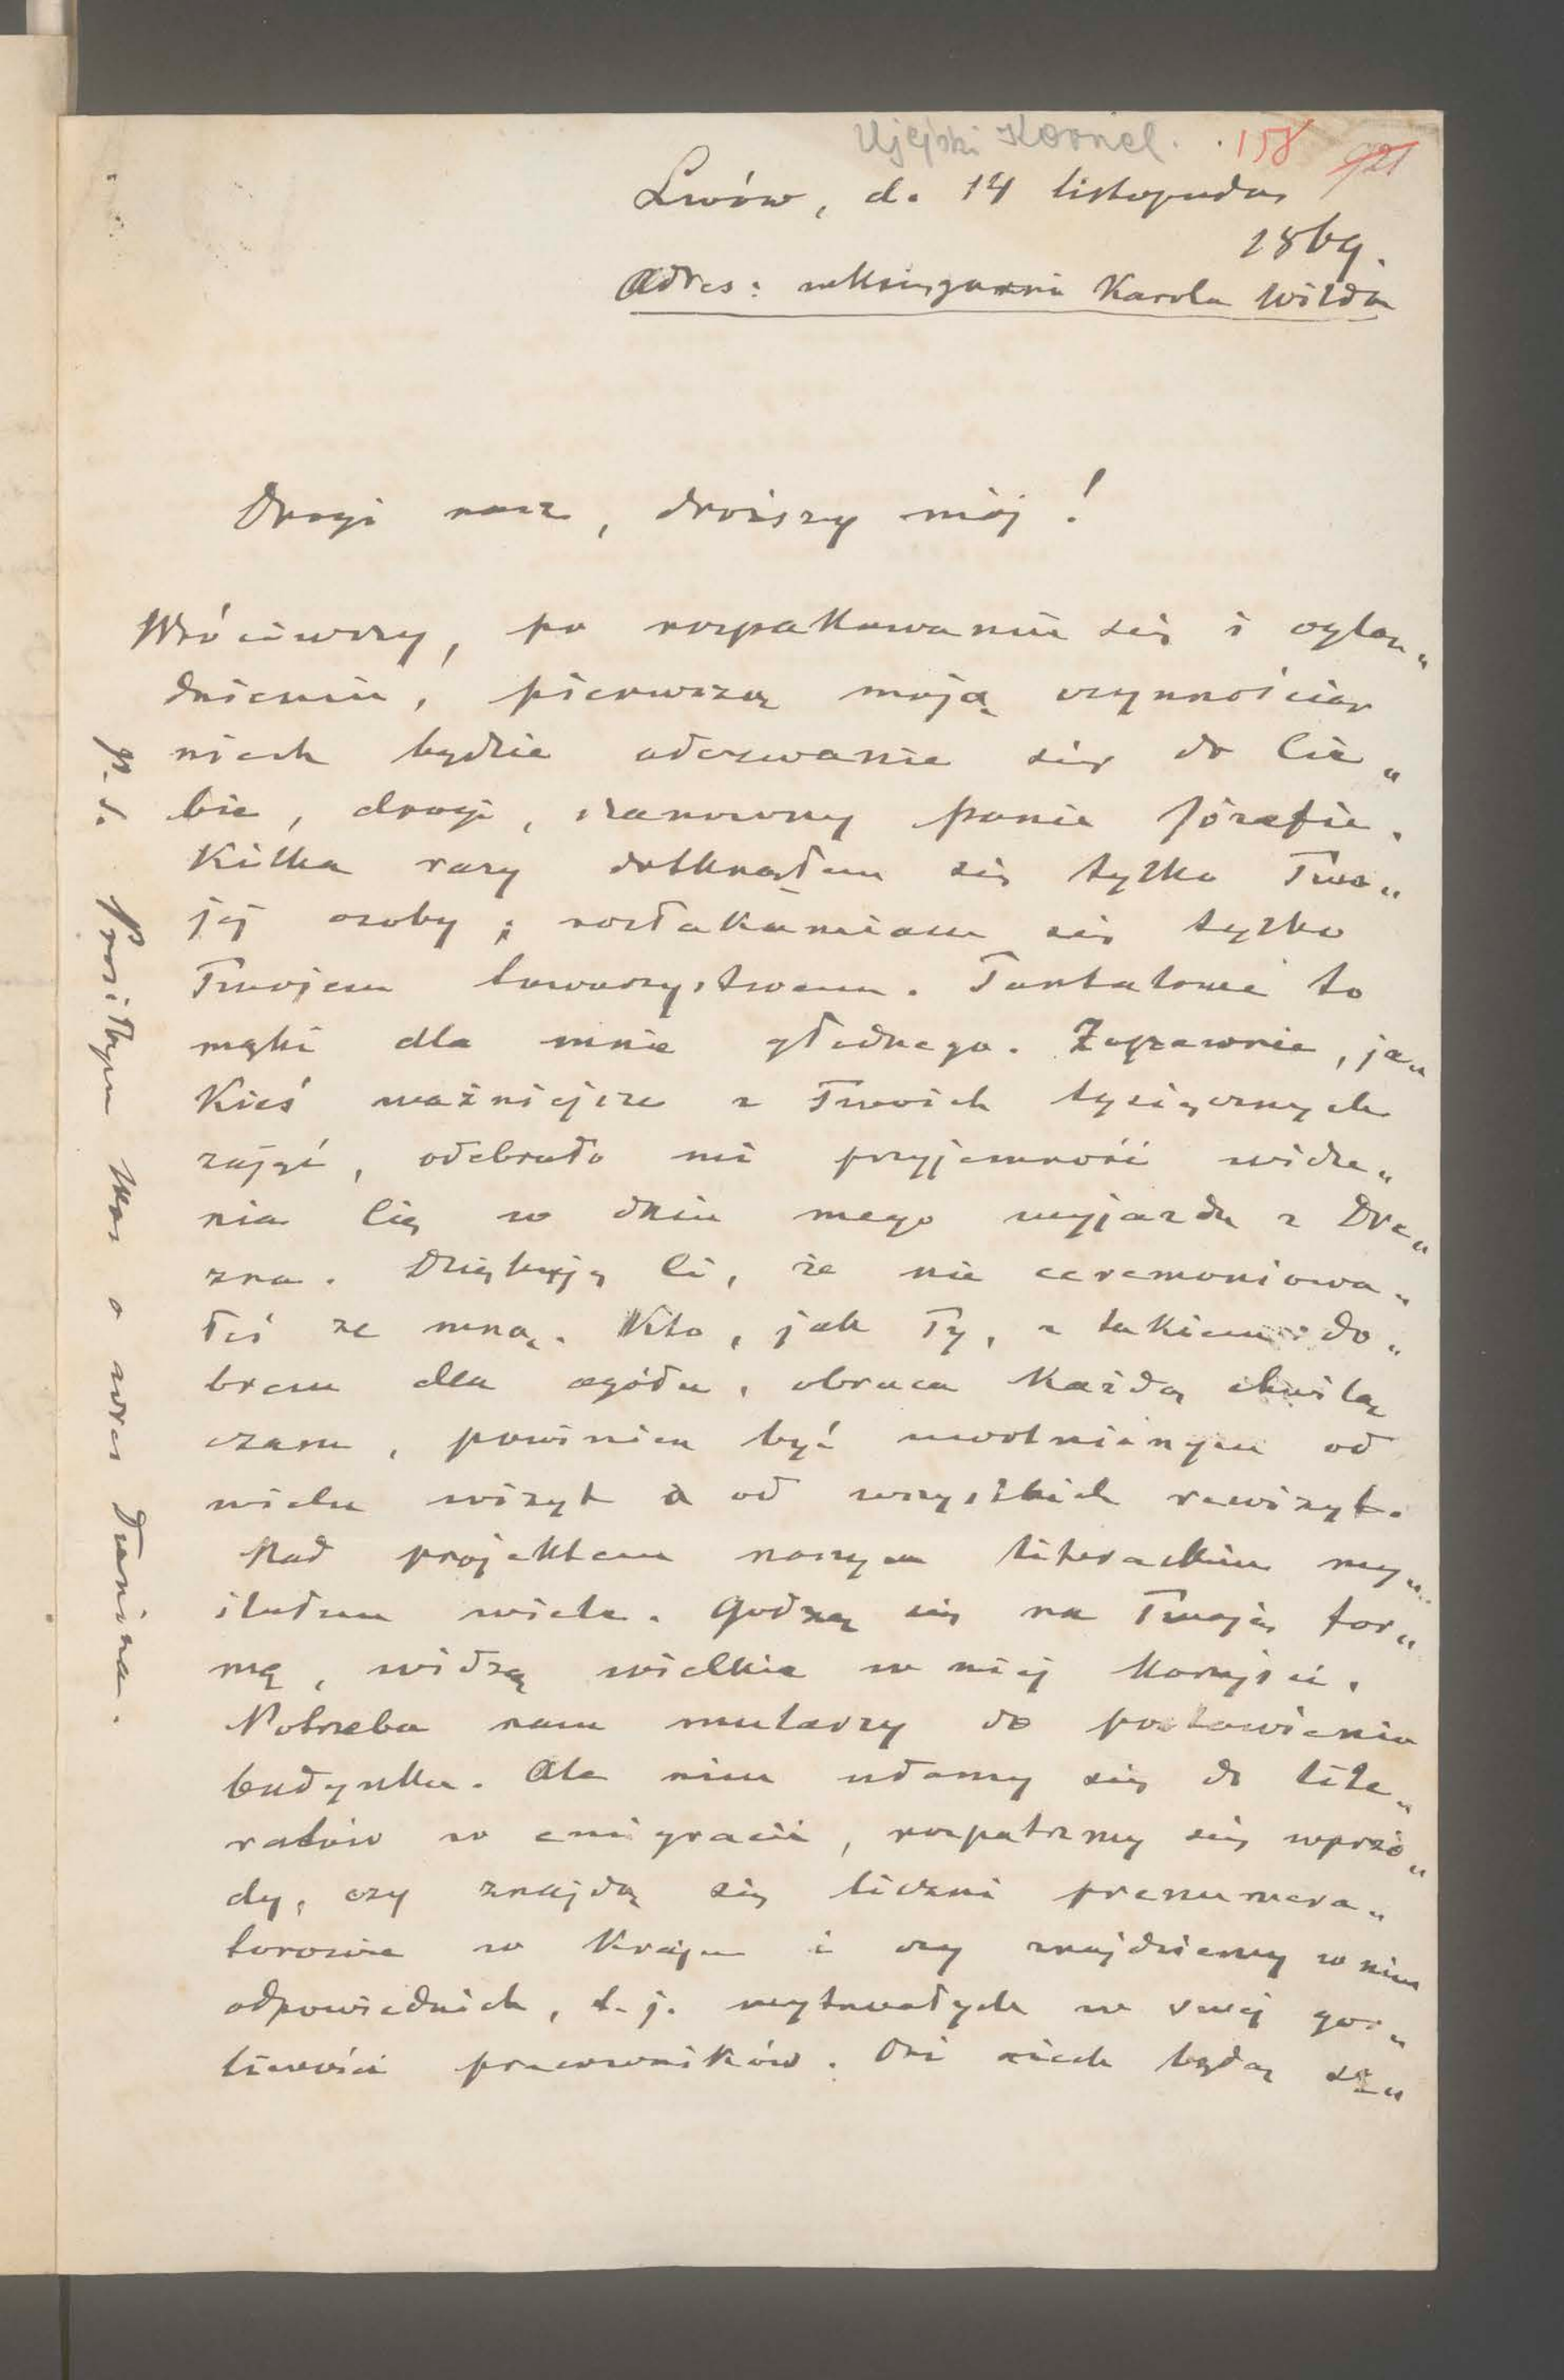 Ujejski Kornel. 158 921
Lwów, d. 14 listopada
1869.
Adres: w Księgarni Karola Wilda
Drogi nasz, droższy mój!
Wróciwszy, po rozpakowaniu się i oglą„
dnieniu, pierwszą moją czynnością
niech będzie odezwanie się do Cie„
bie, drogi, szanowny panie Józefie.
Kilka razy dotknąłem się tylko Two„
jej osoby; rozłakomiłem się tylko
Twojem towarzystwem. Tantalowe to
męki dla mnie głodnego. Zapewnie, ja„
kieś ważniejsze z Twoich tysiącznych
zajęć, odebrało mi przyjemność widze„
nia Cię w dniu mego wyjazdu z Dre„
zna. Dziękuję Ci, że nie ceremoniowa„
łeś ze mną. Kto, jak Ty, z takiem do„
brem dla ogółu, obraca każdą chwilę
czasu, powinien być uwolnionym od
wielu wizyt a od wszystkich rewizyt.
Nad projektem naszym literackim my„
ślałem wiele. Godzę się na Twoję for„
mę, widzę wielkie w niej korzyści.
Potrzeba nam mularzy do postawienia
budynku. Ale nim udamy się do lite„
ratów w emigracii, rozpatrzmy się wprzó„
dy, czy znajdą się liczni prenumera„
torowie w Kraju i czy znajdziemy w nim
odpowiednich, t. j. wytrwałych w swej gor„
liwości pracowników. Oni niech będą
P. S. Prosiłbym Was o adres Dunina.